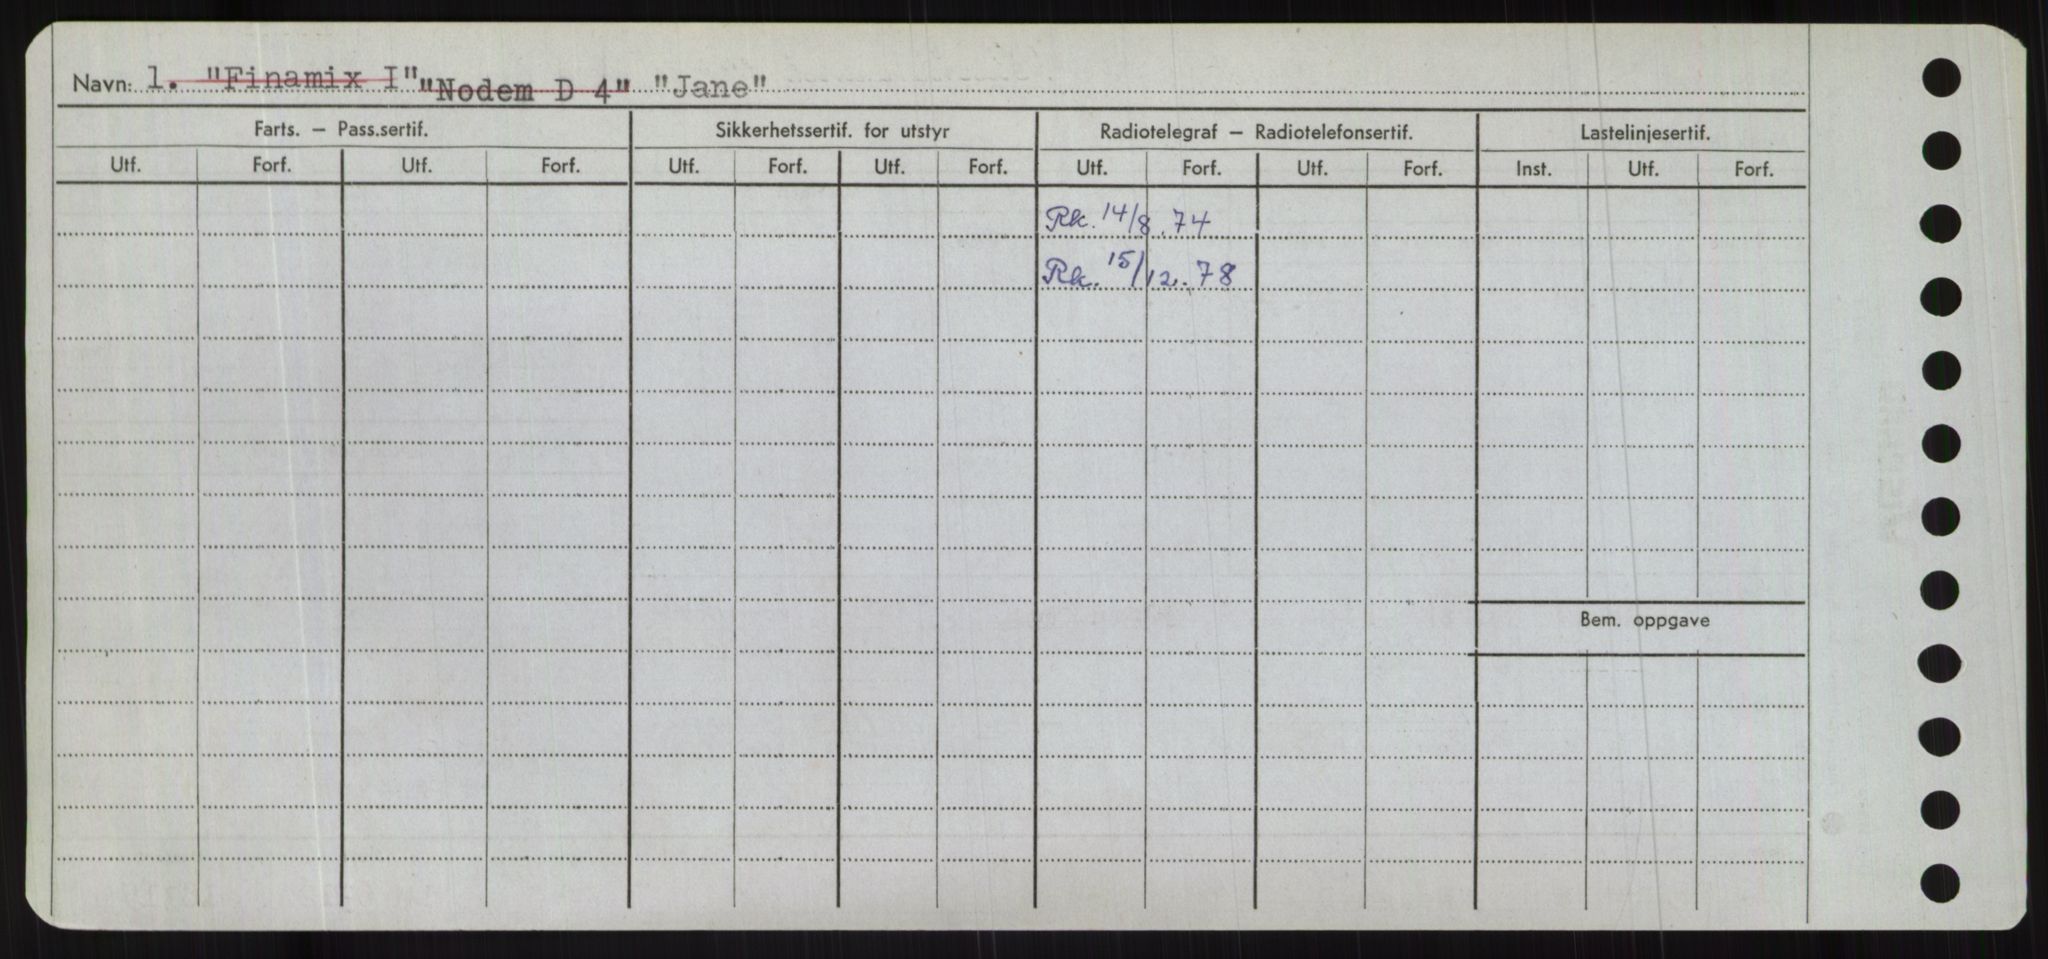 Navn: 1. "Finamix I" "Nodem D 4" "Jane"
Farts. — Pass.sertif. Sikkerhetssertif. for utstyr Radiotelegraf — Radiotelefonsertif. Lastelinjesertif.
Utf. Forf. Utf. Forf. Utf. Forf. Utf. Forf. Utf. Forf. Utf. Forf. Inst. Utf. Forf.
Rk. 14/8. 74
Rk. 15/12. 78
Bem. oppgave